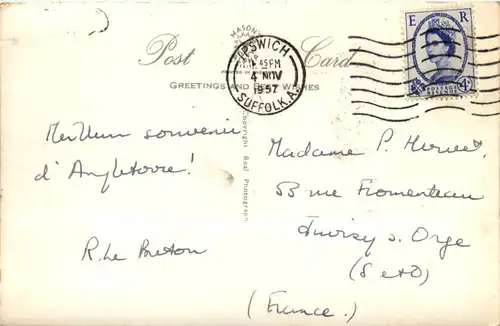 Post Card
GREETINGS AND BEST WISHES
MASON'S
IPSWICH
45 PM
4 NOV
1957
SUFFOLK.A.
E R
4D
Copyright Real Photograph
Meilleur souvenir
d'Angleterre!
R. Le Breton
Madame P. Hervet,
53 rue Fromenteau
Juvisy s. Orge
(S et O)
(France.)